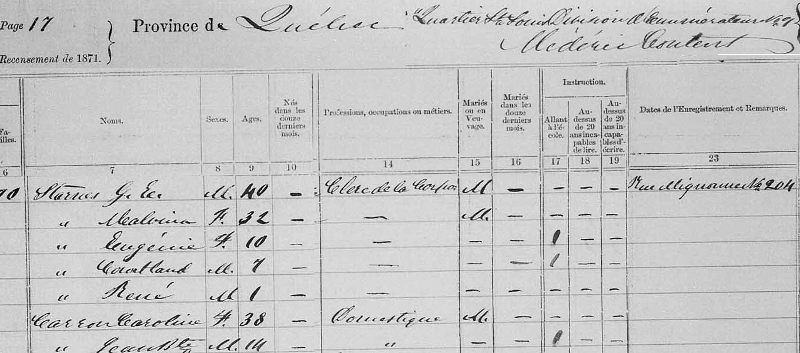 Page 17
Province de Québec
Quartier St Louis Division d'Enumérateur No 9
Recensement de 1871.
Médéric Content
Noms.
Sexes.
Ages.
Nés dans les douze derniers mois.
Professions, occupations ou métiers.
Mariés ou en Veuvage.
Mariés dans les derniers mois.
Instruction.
Allant à l'école.
Au-dessus de 20 ans incapables de lire.
Au-dessus de 20 ans incapables d'écrire.
Dates de l'Enregistrement et Remarques.
6 7 8 9 10 14 15 16 17 18 19 23
Starnes G. M. 40 — Clerc de la M — — — — Rue Mignonne No 204
" Malvina F. 32 — — M. — — — —
" Eugénie F. 10 — — — — 1 — —
" Courtland M. 7 — — — — 1 — —
" René M 1 — — — — — — —
Carron Caroline F. 38 — Domestique M. — — — —
" Jean Bte M. 14 — " — — 1 — —